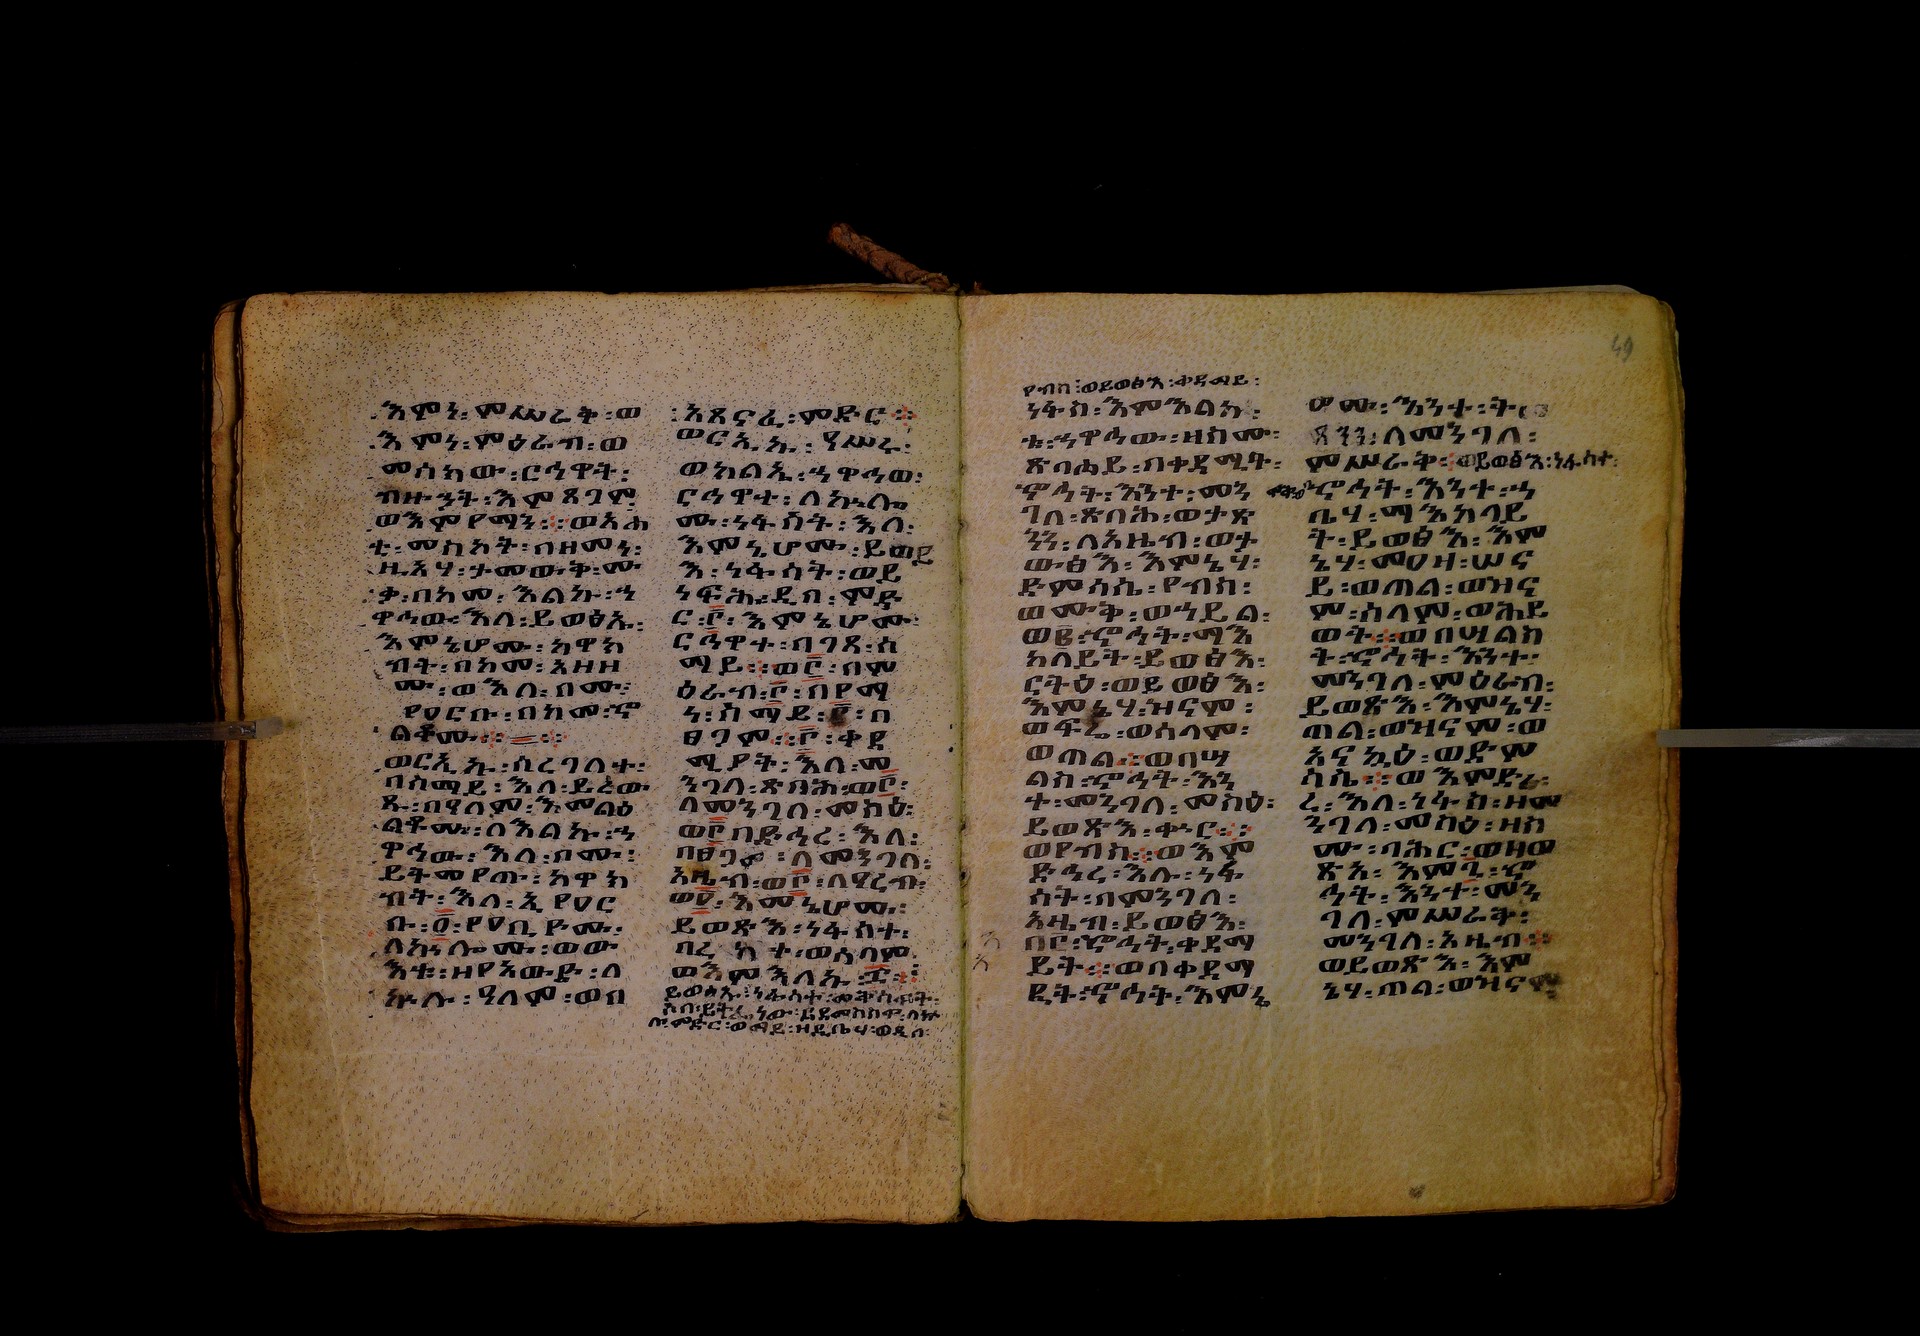 እምነ፡ምሥራቅ፡ወ
እምነ፡ምዕራብ፡ወ
መሳክው፡ርኅዋት፡
ብዙኃት፡እምጸጋም
ወእምየማን፡፡ወአሐ
ቲ፡መስኮት፡በዘመነ፡
ዚአሃ፡ታመውቅ፡ሙ
ቀ፡በከመ፡እልኩ፡ኆ
ዋኅው፡እለ፡ይወፅኡ፡
እምኔሆሙ፡ከዋክ
ብት፡በከመ፡አዘዘ
ሙ፡ወእለ፡በሙ፡
የዐርቡ፡በከመ፡ኆ
ልቆሙ፡፡
ወርኢኩ፡ሰረገላተ፡
በሰማይ፡እለ፡ይረው
ጹ፡በዓለም፡እመልዕ
ልቶሙ፡ለእልኩ፡ኆ
ዋኅው፡እለ፡በሙ፡
ይትመየጡ፡ከዋክ
ብት፡እለ፡ኢየዐር
ቡ፡፩፡የዐቢ፡ዮሙ፡
ለኵሎሙ፡ወው
እቱ፡ዘየአውድ፡ለ
ኵሉ፡ዓለም፡ወበ
አጽናፈ፡ምድር፡፡
ወርኢኩ፡ዓሥሩ፡
ወክልኤ፡ኆዋኅወ፡
ርኅዋተ፡ለኵሎ
ሙ፡ነፋሳት፡እለ፡
እምኔሆሙ፡ይወፅ
እ፡ነፋሳት፡ወይ
ነፍሑ፡ዲበ፡ምድ
ር፡፫፡እምኔሆሙ፡
ርኅዋተ፡በገጸ፡ሰ
ማይ፡፡ወ፫፡በም
ዕራብ፡፫፡በየማ
ነ፡ሰማይ፡፫፡በ
ፀጋም፡፡፫፡ቀዳ
ሚያት፡እለ፡መ
ንገለ፡ጽባሕ፡ወ፫፡
ለመንገለ፡መስዕ፡
ወ፫በድኅረ፡እለ፡
በፀጋም፡ለመንገለ፡
አዜብ፡ወ፫፡ለዓረብ፡
ወ፬፡እምኔሆሙ፡
ይወጽእ፡ነፋሳተ፡
በረከት፡ወሰላም
ወእምእለኩ፡፰፡፡
ይወፅኡ፡ነፋሳተ፡መቅሰፍት፡
ሶበ፡ይትፌነው፡ይደመስስዋ፡ለኵ
ላ፡ምድር፡ወማይ፡ዘዲቤሃ፡ወዲበ፡
የብስ፡ወይወፅእ፡ቀዳማይ፡
ነፋስ፡እምእልክ፡
ቱ፡ኆዋኅው፡ዘስሙ፡
ጽባሓይ፡በቀዳሚት፡
ኆኅት፡እንተ፡መን
ገለ፡ጽባሕ፡ወታጽ
ንን፡ለአዜብ፡ወታ
ውፅእ፡እምኔሃ፡
ድምሳሴ፡የብስ፡
ወሙቅ፡ወኀይል፡
ወ፪፡ኆኅት፡ማእ
ከላይት፡ይወፅእ፡
ርትዕ፡ወይወፅእ፡
እምኔሃ፡ዝናም፡
ወፍሬ፡ወሰላም፡
ወጠል፡፡ወበሣ
ልስ፡ኆኅት፡እን
ተ፡መንገለ፡መስዕ፡
ይወጽእ፡ቍር፡፡
ወየብስ፡፡ወእም
ድኅረ፡እሉ፡ነፋ
ሳት፡በመንገለ፡
አዜብ፡ይወፅእ፡
በ፫፡ኆኅት፡ቀዳማ
ይት፡፡ወበቀዳማ
ዊት፡ኆኅት፡እምኔ
ዎሙ፡እንተ፡ት
ጸንን፡ለመንገለ፡
ምሥራቅ፡ወይወፅእ፡ነፋሳተ፡
ኆኅት፡እንተ፡ኀ
ቤሃ፡ማእከላይ
ት፡ይወፅእ፡እም
ኔሃ፡መዐዛ፡ሠና
ይ፡ወጠል፡ወዝና
ም፡ሰላም፡ወሕይ
ወት፡፡ወበሣልስ
ት፡ኆኅት፡እንተ፡
መንገለ፡ምዕራብ፡
ይወጽእ፡እምኔሃ፡
ጠል፡ወዝናም፡ወ
አናኵዕ፡ወድም
ሳሴ፡፡ወእምድኅ
ረ፡እለ፡ነፋስ፡ዘመ
ንገለ፡መስዕ፡ዘስ
ሙ፡ባሕር፡ወዘወ
ጽአ፡እም፯፡ኆ
ኅት፡እንተ፡መን
ገለ፡ምሥራቅ፡
መንገለ፡አዜብ፡፡
ወይወጽእ፡እም
ኔሃ፡ጠል፡ወዝናም